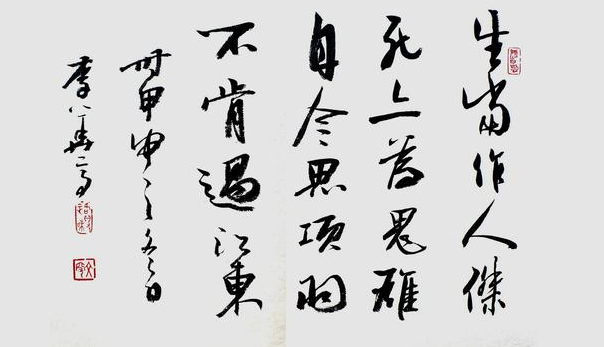 生當作人傑
死亦為鬼雄
自今思項羽
不肯過江東
時甲申冬日
李